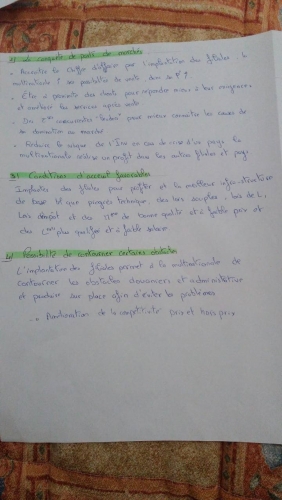 2) la conquête de parts de marchés
• Accroître le chiffre d'affaire par l'implantation des filiales la
multinationale ↑ ses possibilité de vente dans le
• Être à proximité des clients pour répondre mieux à leur exigences
et améliorer les services après vente
• des concurrentes "leaders" pour mieux connaître les causes de
sa domination au marché
• Réduire le risque de l'Inv en cas de crise d'un pays la
multinationale réalise un profit dans les autres filiales et pays
3) Conditions d'accueil favorables
Implanter des filiales pour profiter de la meilleur infrastructure
de base tel que progrès technique des lois souples, bas de
Lois dépôt et des de bonne qualité et à faible prix et
des plus qualifiée et à faible salaire
4) Possibilité de contourner certaines obstacles
L'implantation des filiales permet à la multinationale de
contourner les obstacles douaniers et administrative
et produire sur place afin d'éviter les problèmes
→ Amélioration de la compétitivité prix et hors prix